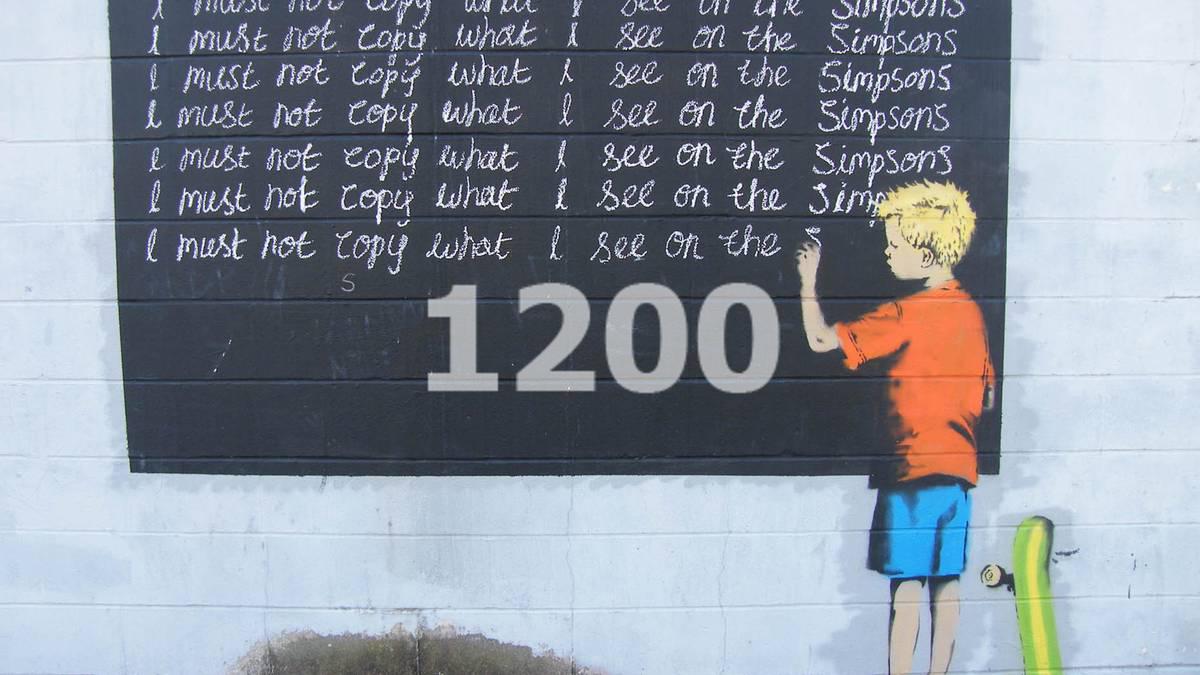 I must not copy what I see on the Simpsons
I must not copy what I see on the Simpsons
I must not copy what I see on the Simpsons
I must not copy what I see on the Simpsons
I must not copy what I see on the Simpsons
I must not copy what I see on the Simp
I must not copy what I see on the S
S
1200